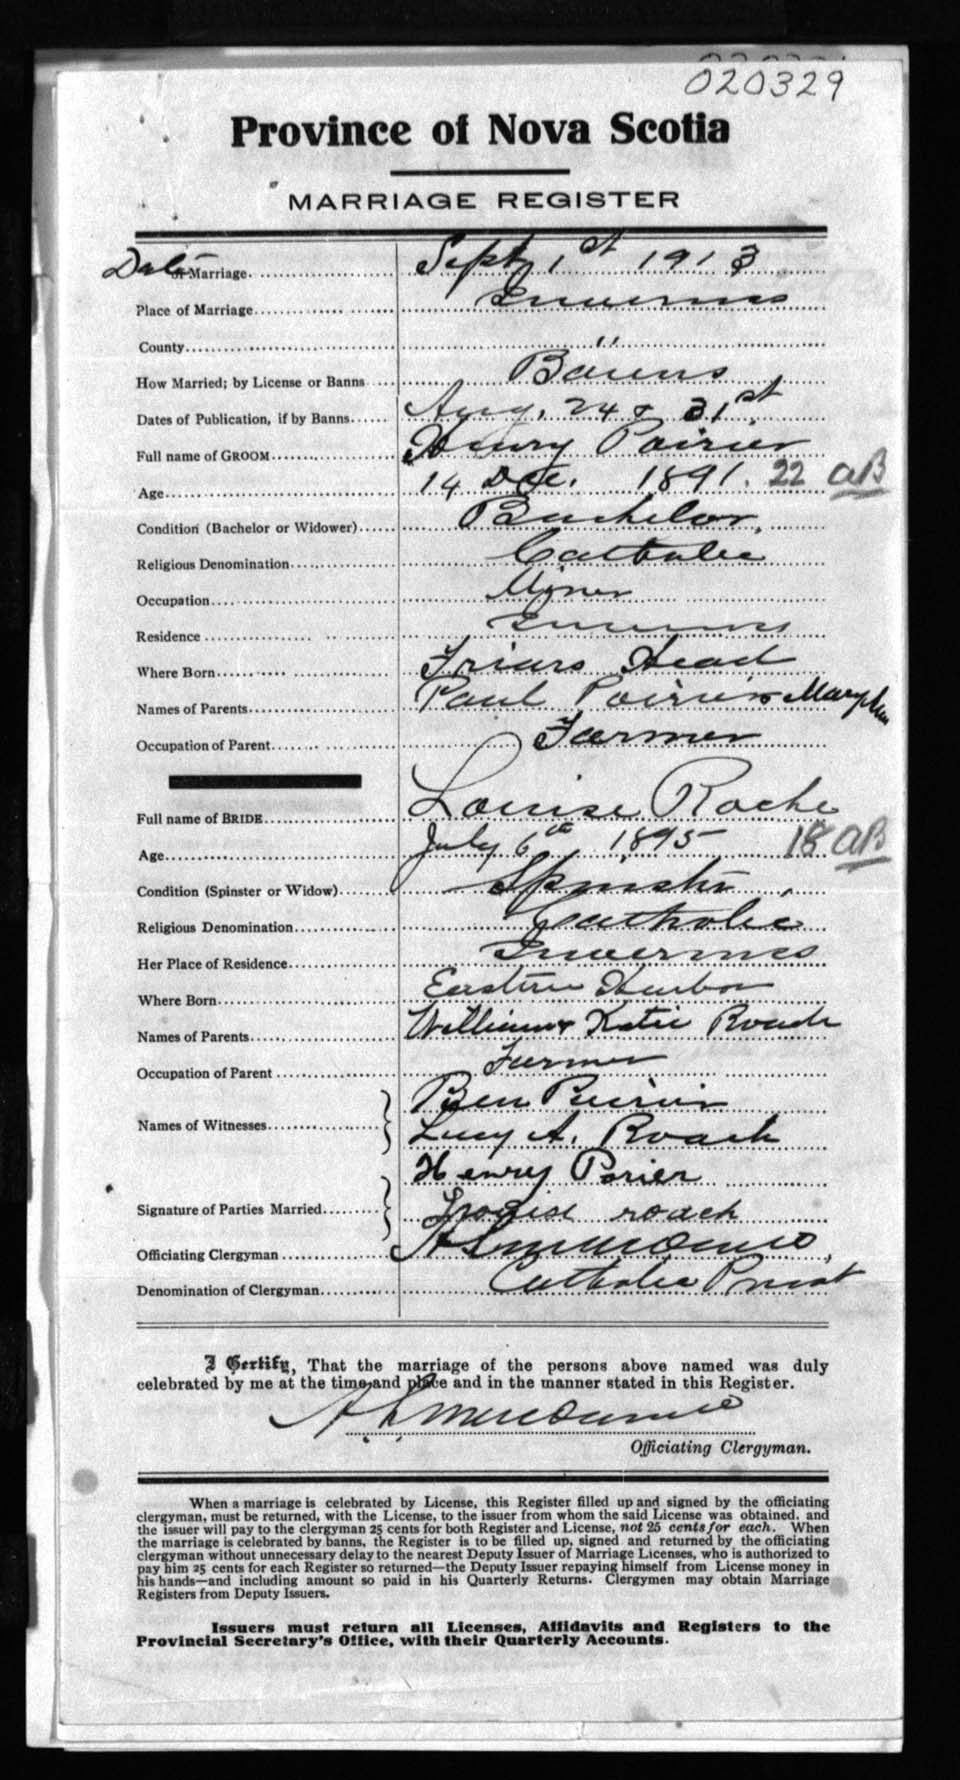 020329
Province of Nova Scotia
MARRIAGE REGISTER
Date of Marriage Sept 1st 1913
Place of Marriage Inverness
County "
How Married; by License or Banns Banns
Dates of Publication, if by Banns Aug. 24 & 31st
Full name of GROOM Henry Poirier
Age 14 Dec. 1891. 22 AB
Condition (Bachelor or Widower) Bachelor,
Religious Denomination Catholic
Occupation Miner
Residence Inverness
Where Born Friars Head
Names of Parents Paul Poirier & Mary Ann
Occupation of Parent Farmer
Full name of BRIDE Louise Roche
Age July 6th 1895 18 AB
Condition (Spinster or Widow) Spinster,
Religious Denomination Catholic
Her Place of Residence Inverness
Where Born Eastern Harbor
Names of Parents William & Katie Roach
Occupation of Parent Farmer
Names of Witnesses Ben Poirier
Lucy A. Roach
Signature of Parties Married Henry Porier
roach
Officiating Clergyman
Denomination of Clergyman Catholic Priest
I Certify, That the marriage of the persons above named was duly
celebrated by me at the time and place and in the manner stated in this Register.
Officiating Clergyman.
When a marriage is celebrated by License, this Register filled up and signed by the officiating
clergyman, must be returned, with the License, to the issuer from whom the said License was obtained, and
the issuer will pay to the clergyman 25 cents for both Register and License, not 25 cents for each. When
the marriage is celebrated by banns, the Register is to be filled up, signed and returned by the officiating
clergyman without unnecessary delay to the nearest Deputy Issuer of Marriage Licenses, who is authorized to
pay him 25 cents for each Register so returned—the Deputy Issuer repaying himself from License money in
his hands—and including amount so paid in his Quarterly Returns. Clergymen may obtain Marriage
Registers from Deputy Issuers.
Issuers must return all Licenses, Affidavits and Registers to the
Provincial Secretary's Office, with their Quarterly Accounts.